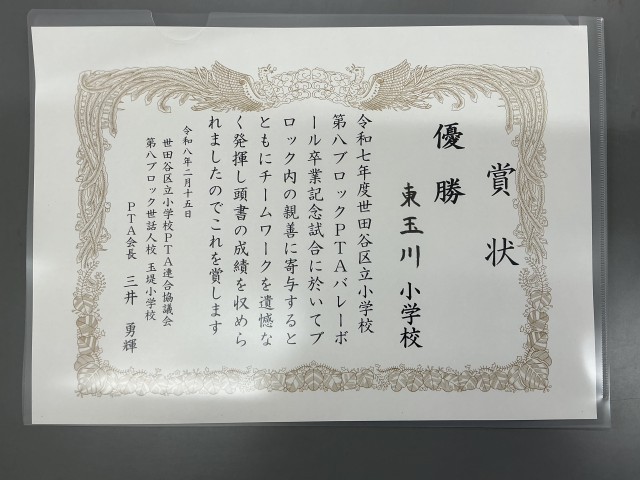 賞状
優勝
東玉川小学校
令和七年度世田谷区立小学校
第八ブロックPTAバレーボ
ール卒業記念試合に於いてブ
ロック内の親善に寄与すると
ともにチームワークを遺憾な
く発揮し頭書の成績を収めら
れましたのでこれを賞します
令和八年二月十五日
世田谷区立小学校PTA連合協議会
第八ブロック世話人校 玉堤小学校
PTA会長 三井 勇輝